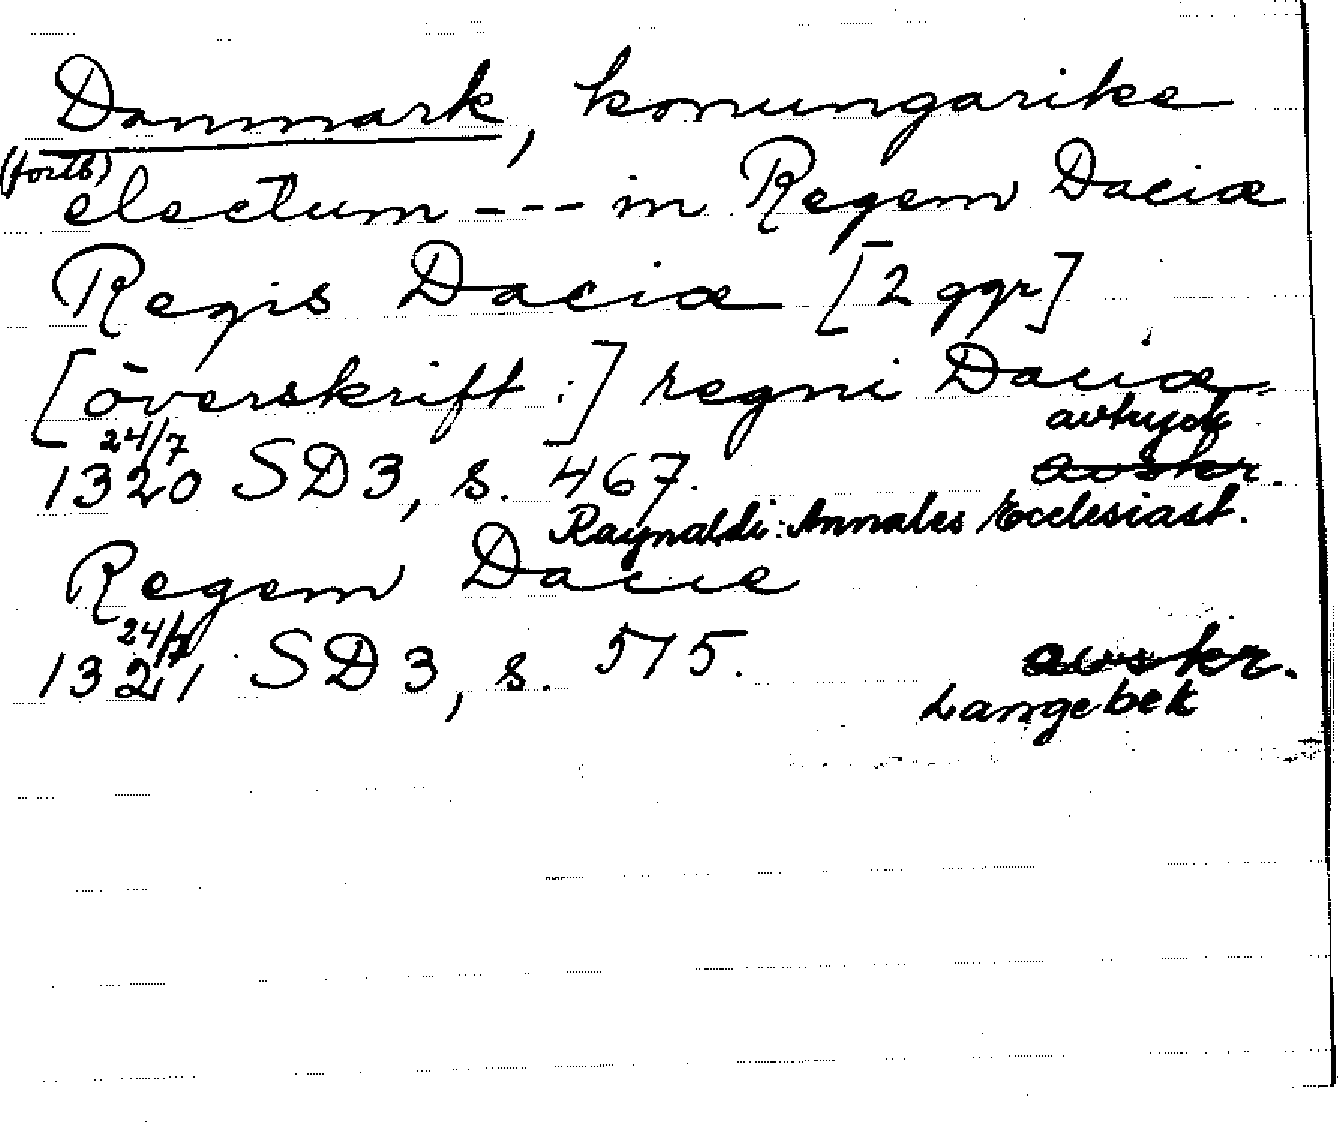 Danmark, konungarike
(forts)
electum --- in Regem Daciæ
Regis Daciæ [2 ggr]
[överskrift:] regni Daciæ
avtryck
24/7
1320 SD3, s. 467. avskr.
Raynaldi: Annales Ecclesiast.
Regem Dacie
24/7
1321 SD3, s. 575. avskr.
Langebek